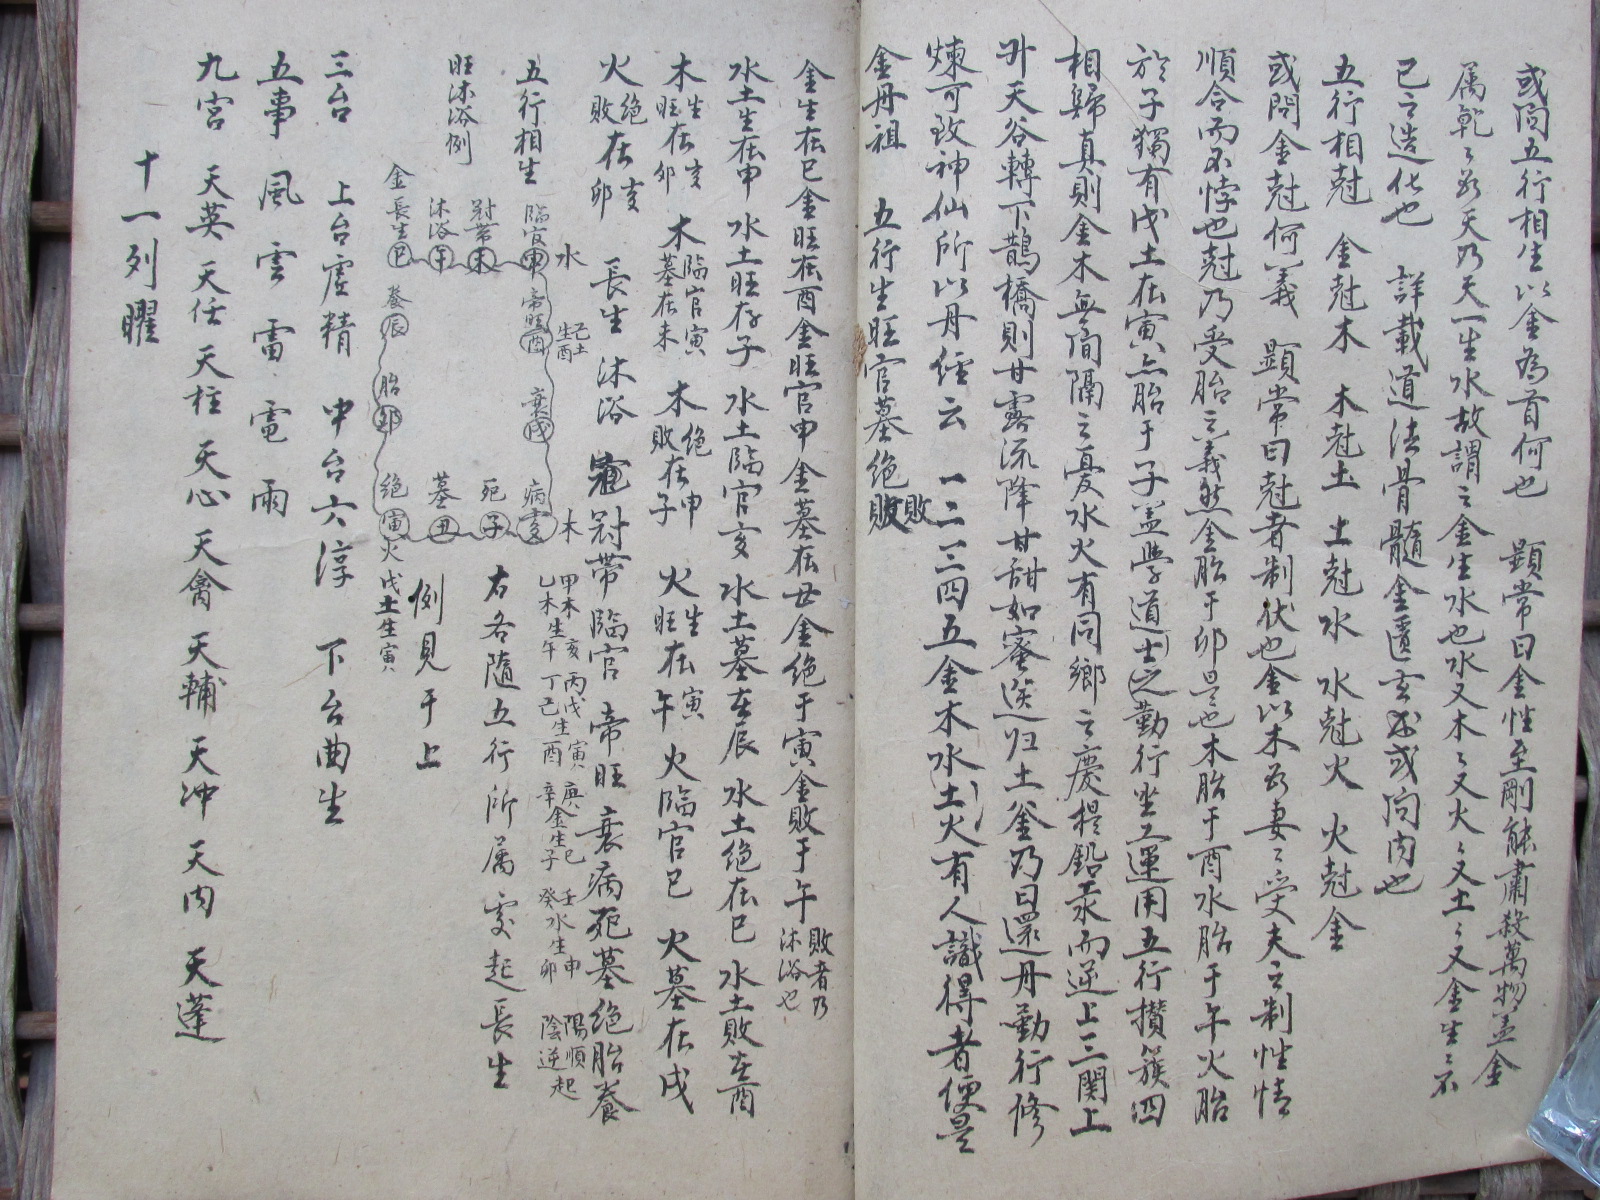 或問五行相生以金為首何也 顕常曰金性至剛能肅殺萬物蓋金
属乾〻爲天乃天一生水故謂之金生水也水又木〻又火〻又土〻又金生〻不
已之造化也 詳載道法骨髓金匱玄或問内也
五行相尅 金尅木 木尅土 土尅水 水尅火 火尅金
或問金尅何義 顕常曰尅者制伏也金以木爲妻〻受夫之制性情
順合而不悖也尅乃受胎之義然金胎于卯是也木胎于酉水胎于午火胎
於子獨有戊土在寅亦胎于子蓋學道士之勤行坐工運用五行攢簇四
相歸真則金木無間隔之憂水火有同鄉之慶提鉛汞而逆上三関上
升天谷轉下鵲橋則甘露流降甘甜如蜜送归土釜乃曰還丹勤行修
煉可致神仙所以丹經云 一二三四五金木水土火有人識得者便是
金丹祖 五行生旺官墓絶敗敗
金生在巳金旺在酉金旺官申金墓在丑金絶于寅金敗于午敗者乃沐浴也
水土生在申 水土旺在子 水土臨官亥 水土墓在辰 水土绝在巳 水土敗在酉
木生旺在亥卯 木臨官寅墓在未 木绝敗在申子 火生旺在寅午 火臨官巳 火墓在戌
火绝敗在亥卯 長生 沐浴 冠 冠帶 臨官 帝旺 衰病死墓绝胎養
五行相生
旺沐浴例
水
己土生酉
臨官申
冠帶未
沐浴午
金長生巳
帝旺酉
養辰
衰戌
胎卯
病亥
死子
墓丑
绝寅
木
火戊土生寅
甲木亥 丙戊寅 庚金生巳 壬水生申 陽順起
乙木生午 丁己生酉 辛子 癸卯 陰逆起
右各隨五行所属處起長生
例見于上
三台 上台虚精 中台六淳 下台曲生
五事 風 雲 雷 電 雨
九宮 天英 天任 天柱 天心 天禽 天輔 天冲 天内 天蓬
十一列曜